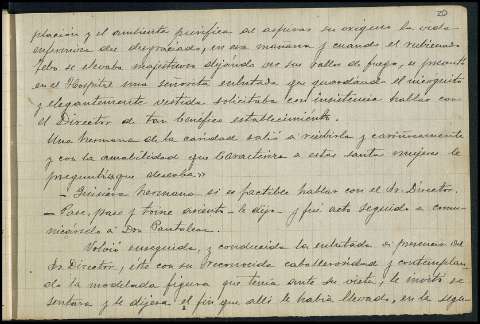 20
plación y el ambiente purifica al aspirar su oxígeno la vida
enfermiza del desgraciado, en esa mañana y cuando el rubicundo
Febo se elevaba majestuoso dejando ver sus rallos de fuego, se presentó
en el Hospital una señorita enlutada que guardando el incognito
y elegantemente vestida solicitaba con insistencia hablar con
el Director de tan benéfico establecimiento.
Una hermana de la caridad salió a recibirla y cariñosamente
y con la amabilidad que caracteriza a estas santas mujeres le
preguntó que deseaba
— Quisiera hermana si es factible hablar con el Sr. Director.
— Pase, pase y tome asiento - le dijo - y fué acto seguido a comu-
nicárselo a Don Pantaleon.
Volvió enseguida, y conducida la enlutada a presencia del
Sr. Director, éste con su reconocida caballerosidad y contemplan-
do la modelada figura que tenia ante su vista, le invitó se
sentara y le dijera el fin que alli le habia llevado, en la segu-